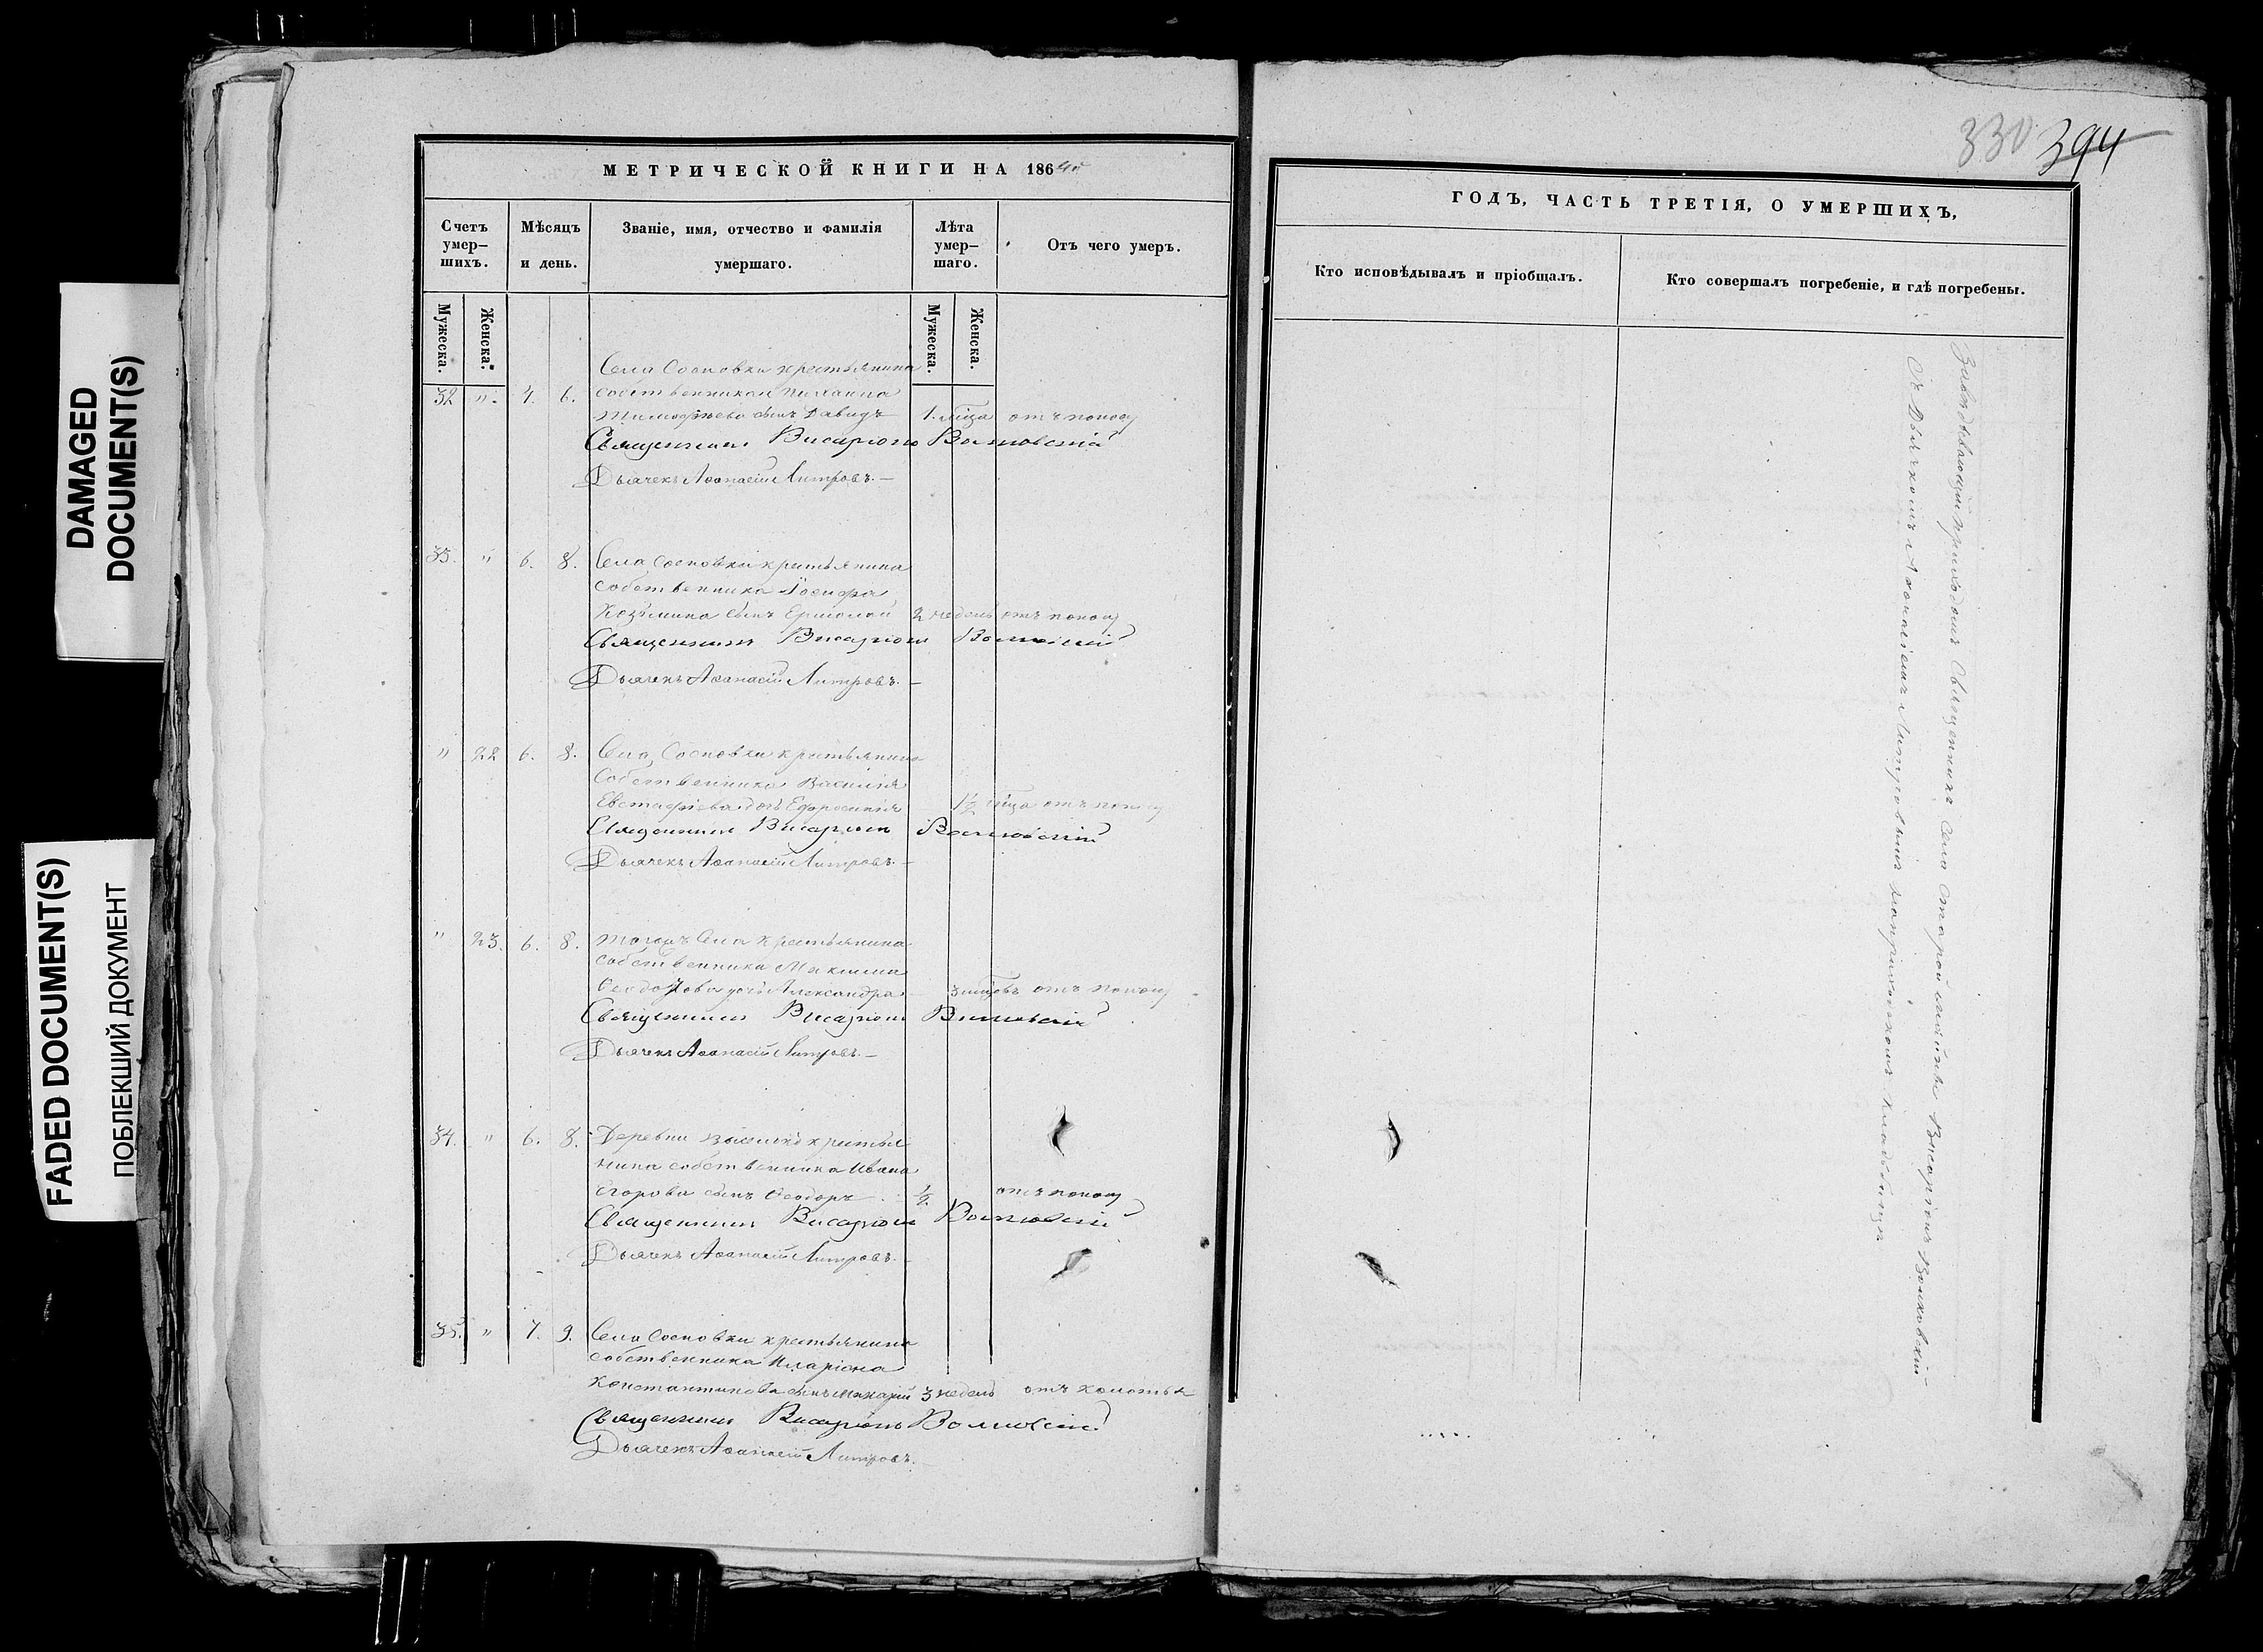 DAMAGED
DOCUMENT(S)
FADED DOCUMENT(S)
ПОБЛЕКШИЙ ДОКУМЕНТ
МЕТРИЧЕСКОЙ КНИГИ НА 1864й
Счетъ умер–шихъ.
Мѣсяцъ и день.
Званіе, имя, отчество и фамилія умершаго.
Лѣта умер–шаго.
Отъ чего умеръ.
Мужеска.
Женска.
Мужеска.
Женска.
Села Сосновки крестьянина
32 „ 4. 6. собственника
Тимофѣева сынъ Давидъ 1. мѣца отъ поносу
Священникъ Висаріонъ Волковскій
Дьячекъ Аѳанасій Литровъ.—
33. „ 6. 8. Села Сосновки крестьянина
собственника Іосифа
Козьмина сынъ Ермолай 2 недель отъ поносу
Священникъ Висаріонъ Волковскій
Дьячекъ Аѳанасій Литровъ.—
„ 22 6. 8. Села Сосновки крестьянина
Собственника Василія
Евстафіева дочь Ефросинія 1½ мѣца отъ поносу
Священникъ Висаріонъ Волковскій
Дьячекъ Аѳанасій Литровъ.—
„ 23. 6. 8. тогожъ Села крестьянина
собственника Максима
Ѳеодорова дочь Александра 3 мѣцовъ отъ поносу
Священникъ Висаріонъ Волковскій
Дьячекъ Аѳанасій Литровъ.—
34. „ 6. 8. Деревни крестья
нина собственника Ивана
Егорова сынъ Ѳеодоръ ½ отъ поносу
Священникъ Висаріонъ Волковскій
Дьячекъ Аѳанасій Литровъ.—
35. „ 7. 9. Села Сосновки крестьянина
собственника Иларіона
Константинова сынъ Макарій 3 недель отъ колотья
Священникъ Висаріонъ Волковскій
Дьячекъ Аѳанасій Литровъ.—
330 394
ГОДЪ, ЧАСТЬ ТРЕТІЯ, О УМЕРШИХЪ,
Кто исповѣдывалъ и пріобщалъ.
Кто совершалъ погребеніе, и гдѣ погребены.
Завѣдывающій приходомъ Священникъ Села Старой Висаріонъ Волковскій
Съ Дьячкомъ Аѳанасіемъ Литровымъ на приходскомъ кладбищѣ